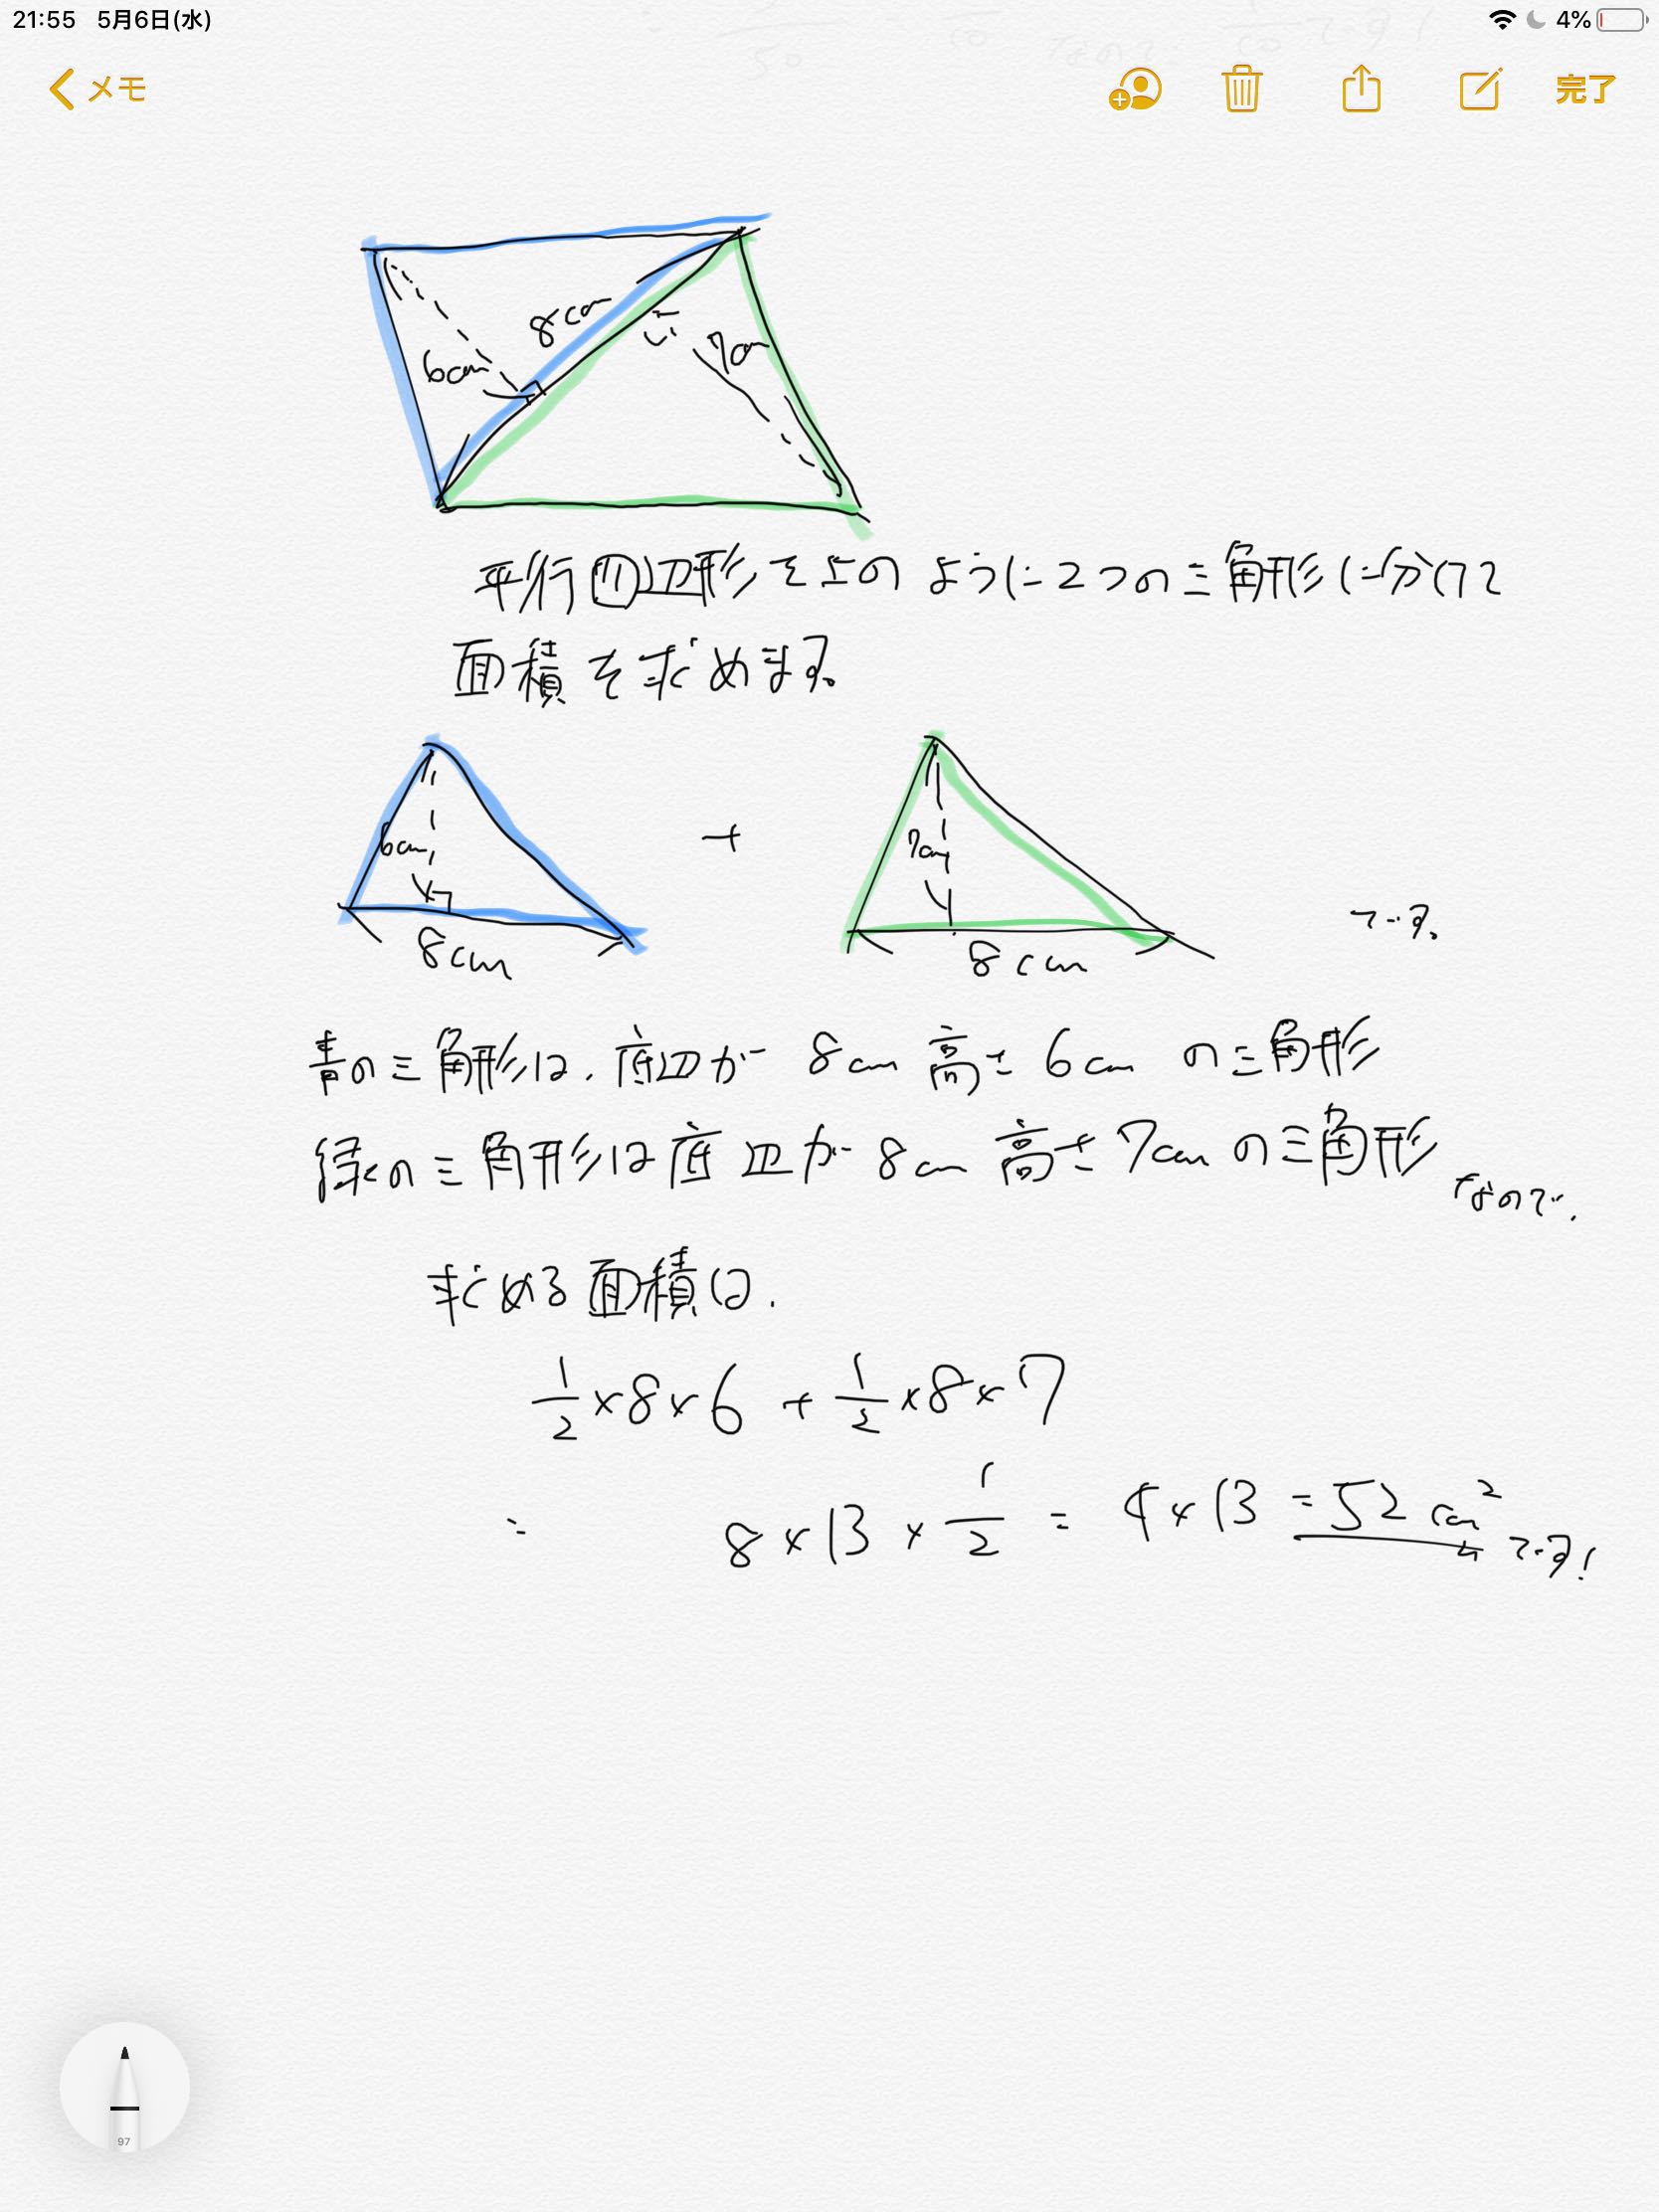 21:55 5月6日(水) 4%
メモ 完了
8cm
6cm
7cm
平行四辺形を上のように2つの三角形に分けて
面積を求めます。
6cm + 7cm
8cm 8cm です。
青の三角形は、底辺が 8cm 高さ 6cm の三角形
緑の三角形は底辺が 8cm 高さ 7cm の三角形なので、
求める面積は、
1/2 × 8 × 6 + 1/2 × 8 × 7
= 8 × 13 × 1/2 = 4 × 13 = 52 cm² です!
97